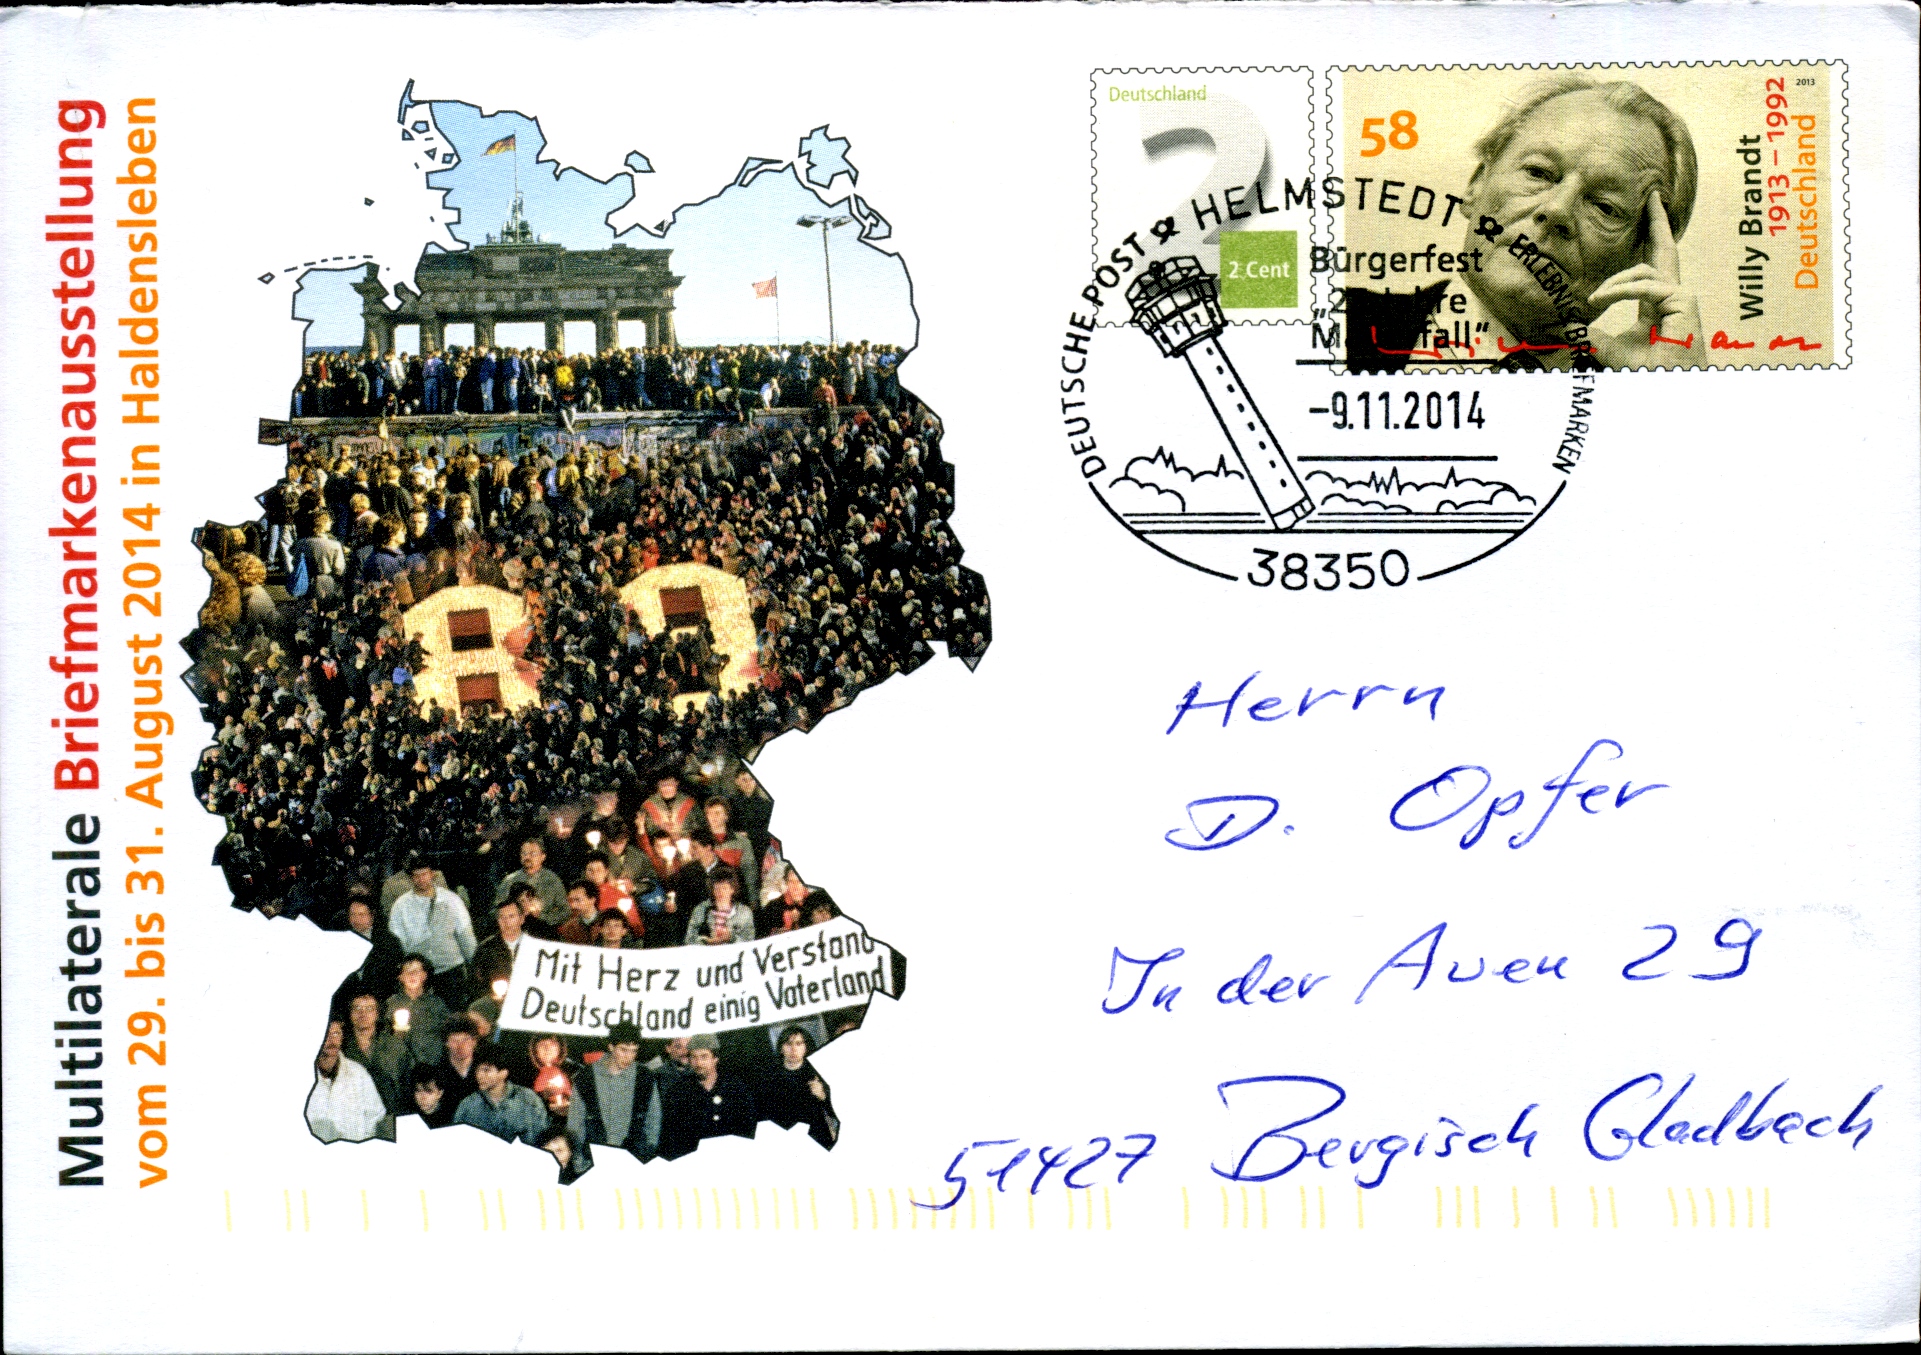 Multilaterale Briefmarkenausstellung
vom 29. bis 31. August 2014 in Haldensleben
Mit Herz und Verstand
Deutschland einig Vaterland
Deutschland
2
2 Cent
58
Willy Brandt
1913 – 1992
Deutschland
2013
DEUTSCHE POST HELMSTEDT ERLEBNIS BRIEFMARKEN
Bürgerfest
-9.11.2014
38350
Herrn
D. Opfer
In der Auen 29
51427 Bergisch Gladbach